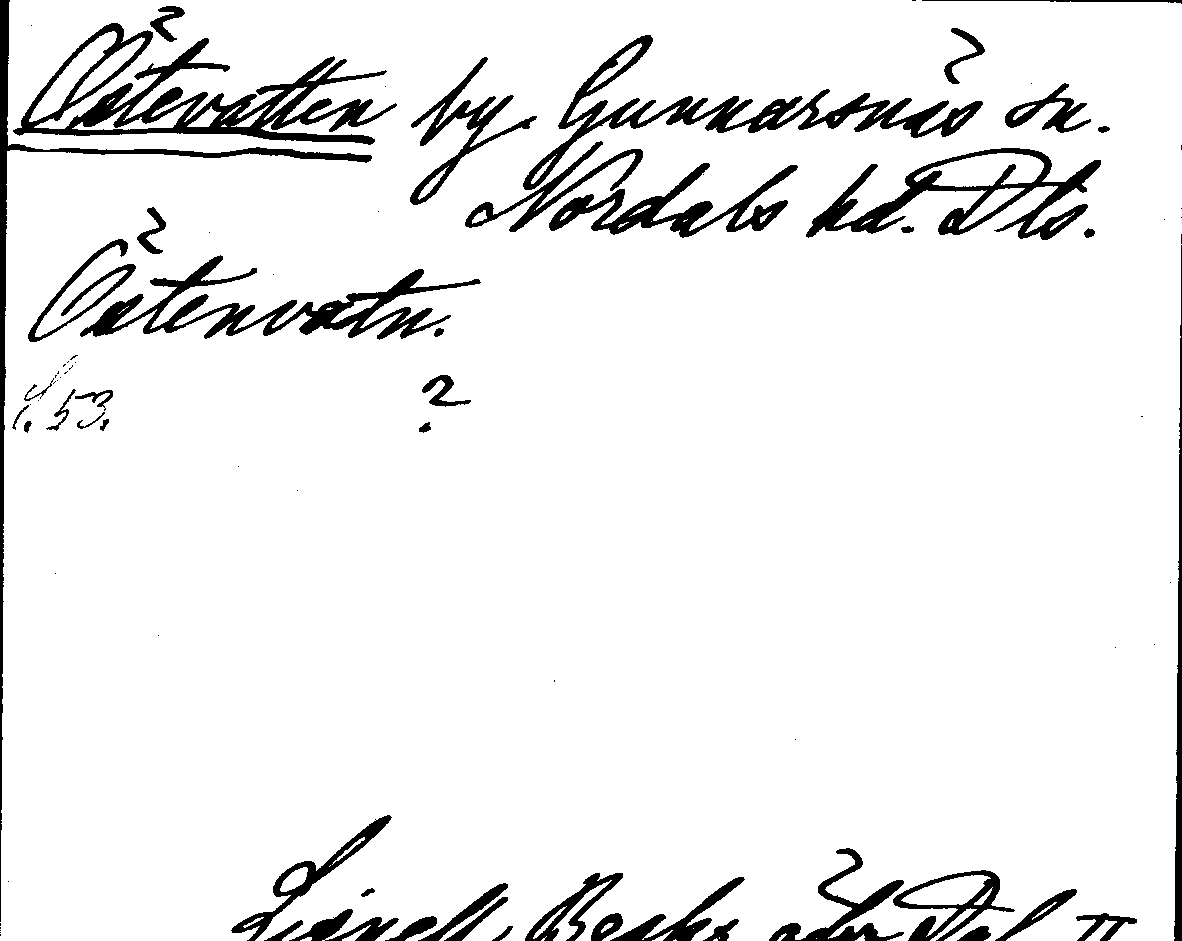 Östevatten by. Gunnarsnäs sn.
Nordals hd. Dls.
Östenvatn.
l. 53. ?
Lignell, Beskr. över Dal II